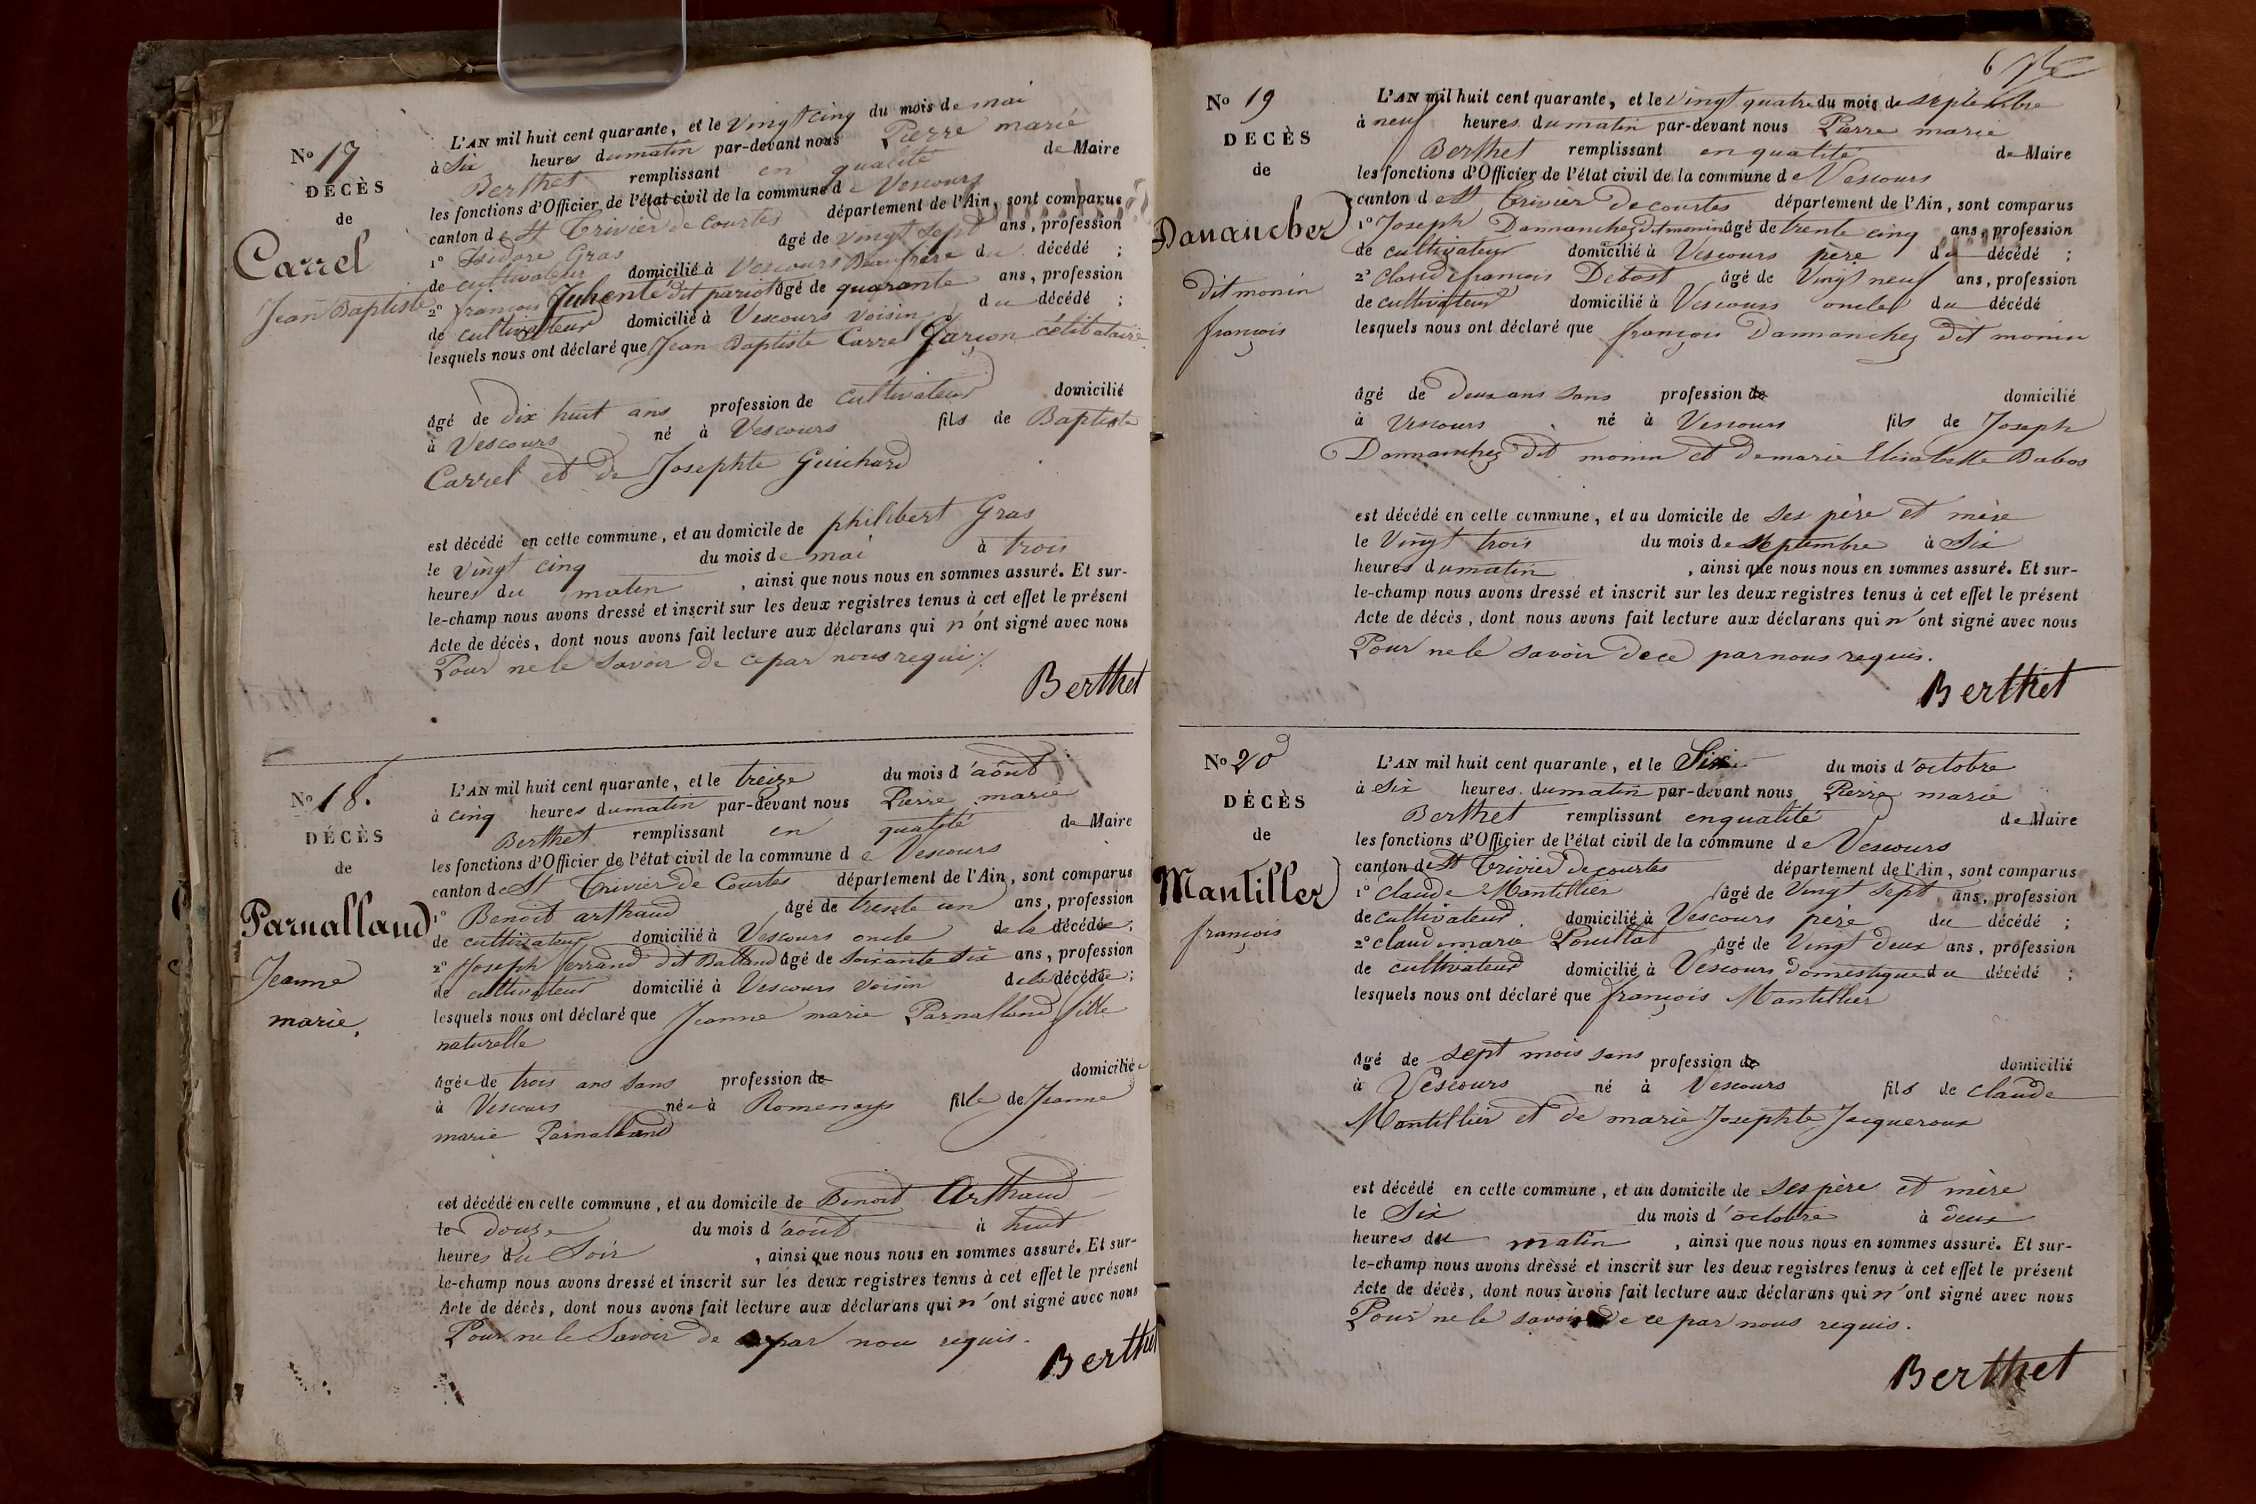 No 17
DÉCÈS
de
Carrel
Jean Baptiste
L'AN mil huit cent quarante, et le vingt cinq du mois de mai
à Six heures du matin par-devant nous Pierre marie
Berthet remplissant en qualité de Maire
les fonctions d'Officier de l'état civil de la commune de Vescours
canton de St Trivier de Courtes département de l'Ain, sont comparus
1o Isidore Gras âgé de vingt sept ans, profession
de cultivateur domicilié à Vescours Beaufrère du décédé ;
2o françois Juhente dit pariot âgé de quarante ans, profession
de cultivateur domicilié à Vescours voisin du décédé ;
lesquels nous ont déclaré que Jean Baptiste Carrel Garcon célibataire
âgé de dix huit ans profession de cultivateur domicilié
à Vescours né à Vescours fils de Baptiste
Carrel et de Josephte Guichard
est décédé en cette commune, et au domicile de philibert Gras
le vingt cinq du mois de mai à trois
heures du matin , ainsi que nous nous en sommes assuré. Et sur-
le-champ nous avons dressé et inscrit sur les deux registres tenus à cet effet le présent
Acte de décès, dont nous avons fait lecture aux déclarans qui n'ont signé avec nous
Pour ne le savoir de ce par nous requis
Berthet
No 18.
DÉCÈS
de
Parnalland
Jeanne
marie.
L'AN mil huit cent quarante, et le treize du mois d'août
à cinq heures du matin par-devant nous Pierre marie
Berthet remplissant en qualité de Maire
les fonctions d'Officier de l'état civil de la commune de Vescours
canton de St Trivier de Courtes département de l'Ain, sont comparus
1o Benoit arthaud âgé de trente un ans, profession
de cultivateur domicilié à Vescours oncle de la décédée ;
2o Joseph ferrand dit Balland âgé de soixante six ans, profession
de cultivateur domicilié à Vescours voisin de la décédée ;
lesquels nous ont déclaré que Jeanne marie Parnalland fille
naturelle
âgée de trois ans sans profession de domiciliée
à Vescours née à Romenay fille de Jeanne
marie Parnalland
est décédé en cette commune, et au domicile de Benoit Arthaud
le douze du mois d'août à huit
heures du Soir , ainsi que nous nous en sommes assuré. Et sur-
le-champ nous avons dressé et inscrit sur les deux registres tenus à cet effet le présent
Acte de décès, dont nous avons fait lecture aux déclarans qui n'ont signé avec nous
Pour ne le Savoir de ce par nous requis.
Berthet
6
No 19
DÉCÈS
de
Danancher
dit monin
françois
L'AN mil huit cent quarante, et le vingt quatre du mois de septembre
à neuf heures du matin par-devant nous Pierre marie
Berthet remplissant en qualité de Maire
les fonctions d'Officier de l'état civil de la commune de Vescours
canton de St Trivier de courtes département de l'Ain, sont comparus
1o Joseph Dannanchez dit monin âgé de trente cinq ans, profession
de cultivateur domicilié à Vescours père du décédé ;
2o Claude françois Debost âgé de Vingt neuf ans, profession
de cultivateur domicilié à Vescours oncle du décédé
lesquels nous ont déclaré que françois Dannanchez dit monin
âgé de deux ans sans profession de domicilié
à Vescours né à Vescours fils de Joseph
Dannanchez dit monin et de marie Elisabethe Babos
est décédé en cette commune, et au domicile de ses père et mère
le Vingt trois du mois de septembre à Six
heures du matin , ainsi que nous nous en sommes assuré. Et sur-
le-champ nous avons dressé et inscrit sur les deux registres tenus à cet effet le présent
Acte de décès, dont nous avons fait lecture aux déclarans qui n'ont signé avec nous
Pour ne le savoir de ce par nous requis.
Berthet
No 20
DÉCÈS
de
Mantiller
françois
L'AN mil huit cent quarante, et le Six du mois d'octobre
à Six heures du matin par-devant nous Pierre marie
Berthet remplissant en qualité de Maire
les fonctions d'Officier de l'état civil de la commune de Vescours
canton de St Trivier de courtes département de l'Ain, sont comparus
1o claude Mantillier âgé de Vingt sept ans, profession
de cultivateur domicilié à Vescours père du décédé ;
2o claude marie Pouillat âgé de Vingt deux ans, profession
de cultivateur domicilié à Vescours domestique du décédé ;
lesquels nous ont déclaré que françois Mantillier
âgé de sept mois sans profession de domicilié
à Vescours né à Vescours fils de claude
Mantillier et de marie Josephte Jacqueroux
est décédé en cette commune, et au domicile de Ses père et mère
le Six du mois d'octobre à deux
heures du matin , ainsi que nous nous en sommes assuré. Et sur-
le-champ nous avons dressé et inscrit sur les deux registres tenus à cet effet le présent
Acte de décès, dont nous avons fait lecture aux déclarans qui n'ont signé avec nous
Pour ne le savoir de ce par nous requis.
Berthet